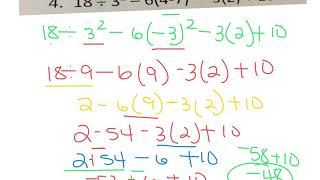 4. 18 ÷ 3
18 ÷ 3² - 6(-3)² - 3(2) + 10
18 ÷ 9 - 6(9) - 3(2) + 10
2 - 6(9) - 3(2) + 10
2 - 54 - 3(2) + 10
2 + ⁻54 - 6 + 10
⁻58 + 10
⁻48